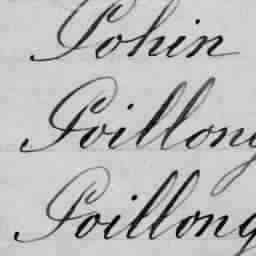 Gohin
Goillong
Goillong